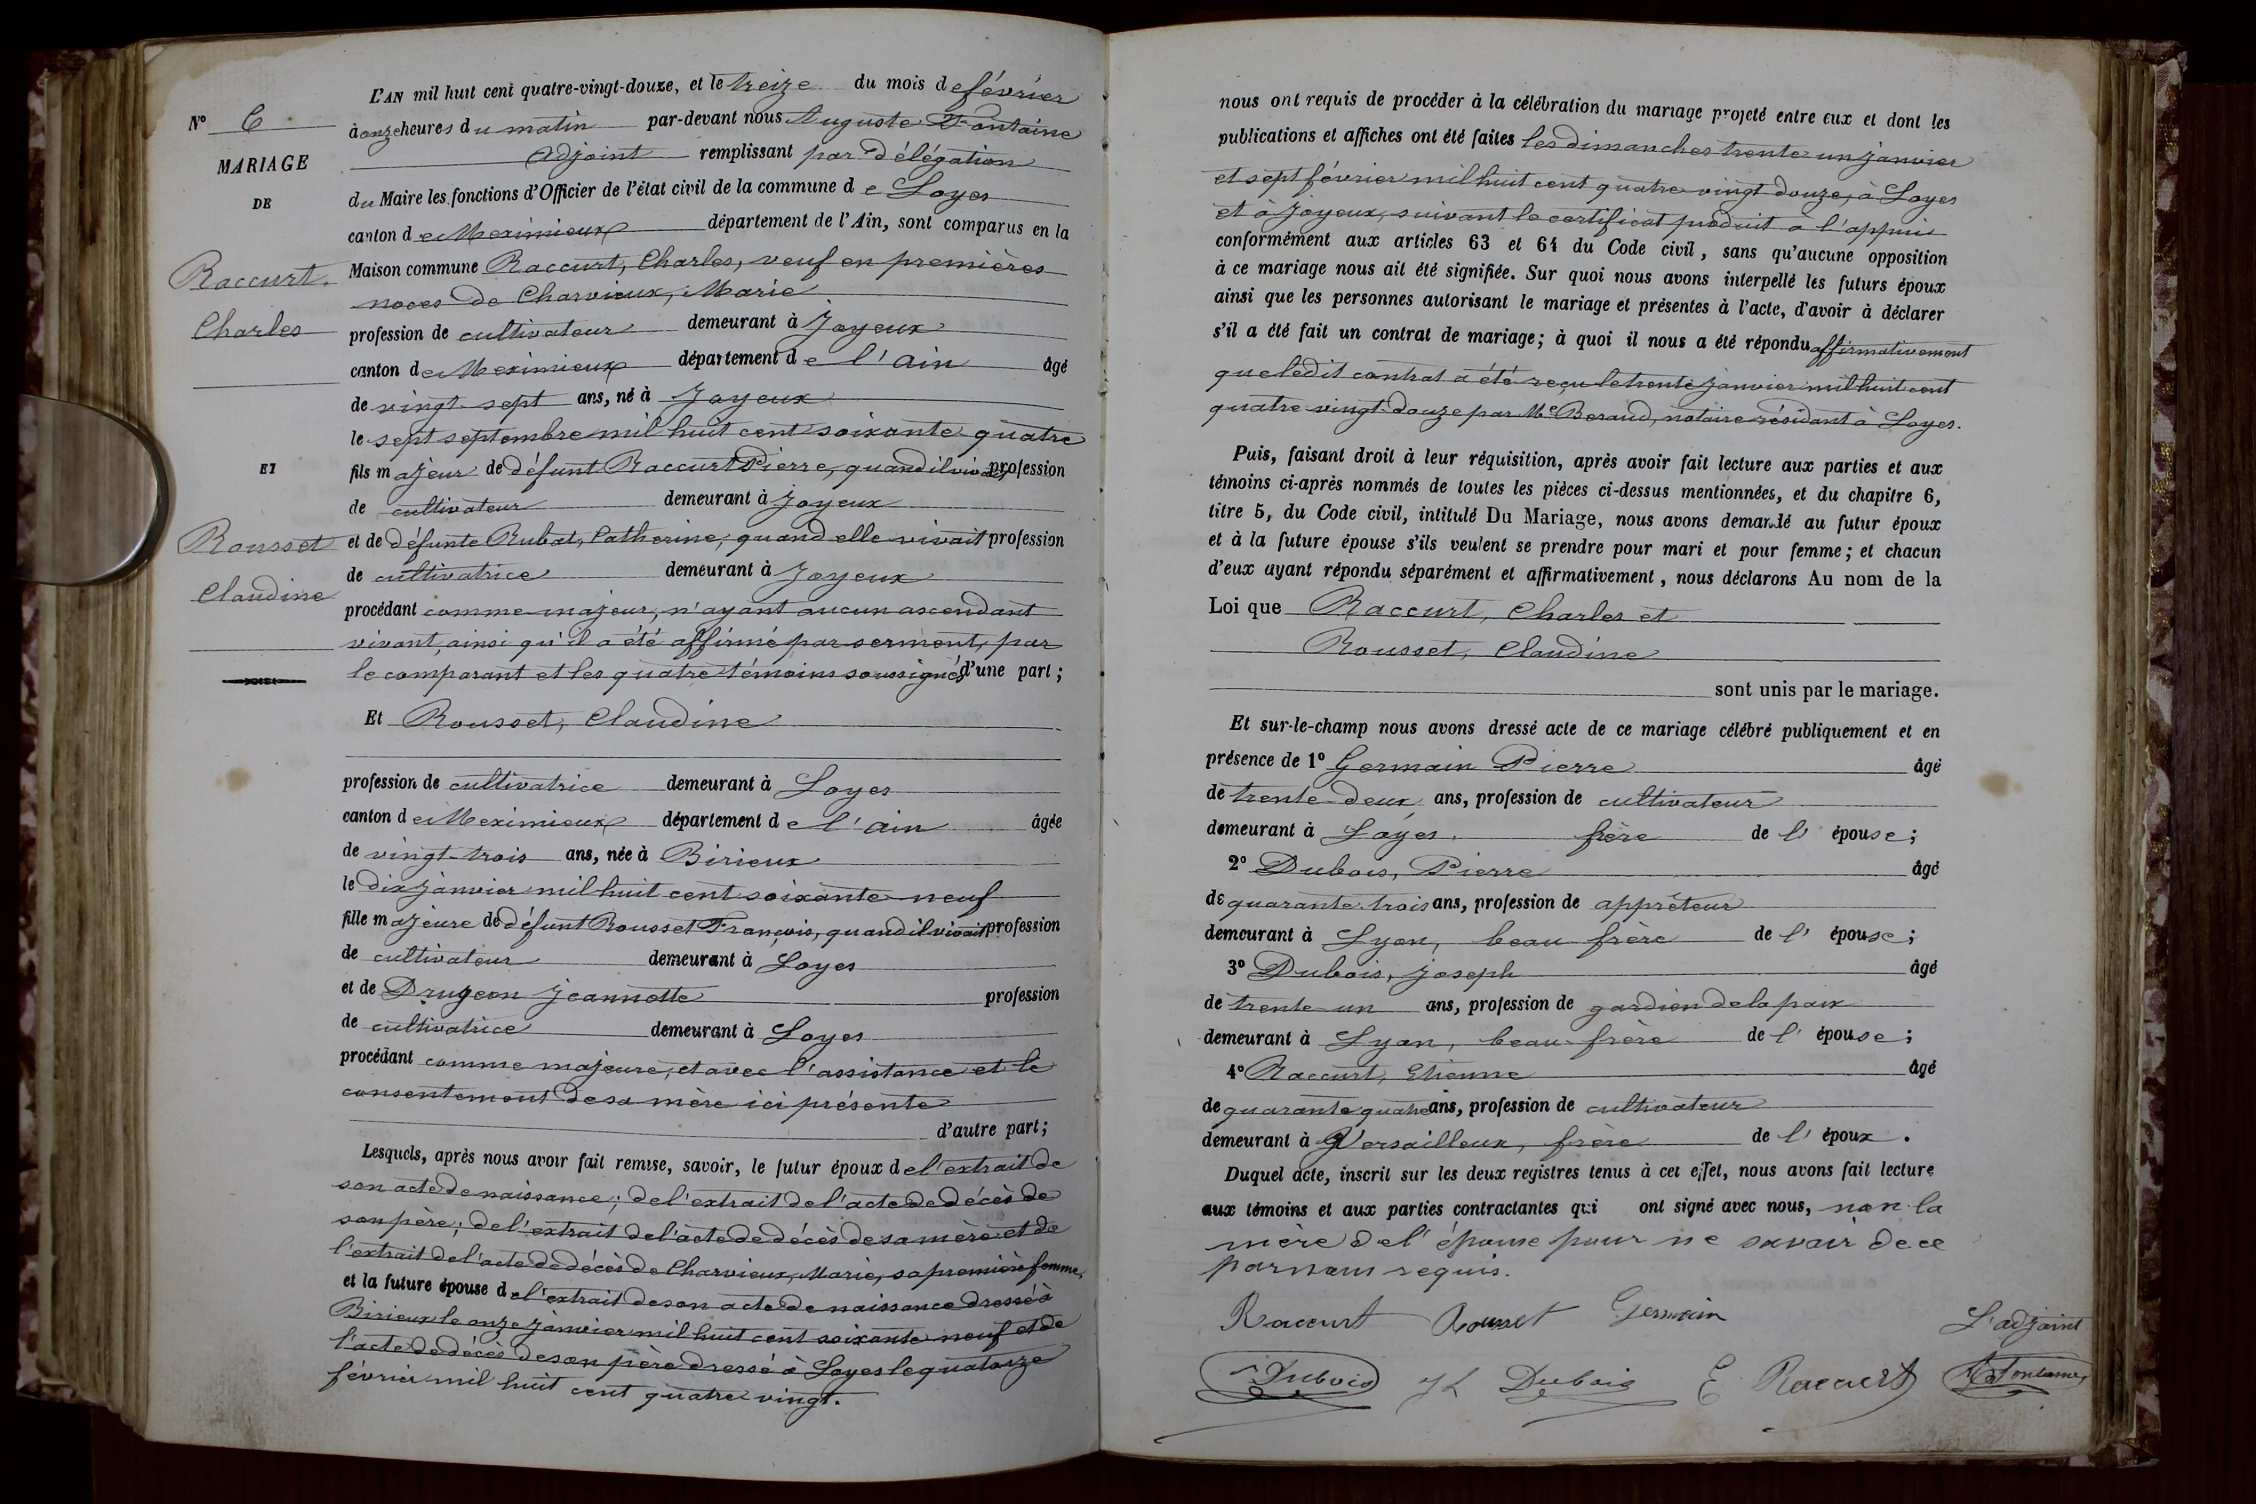 N° 6
MARIAGE
DE
Raccurt,
Charles
ET
Rousset
Claudine
L'AN mil huit cent quatre-vingt-douze, et le treize du mois de février
à onze heures du matin par-devant nous Auguste Fontaine
Adjoint remplissant par délégation
du Maire les fonctions d'Officier de l'état civil de la commune de Loyes
canton de Meximieux département de l'Ain, sont comparus en la
Maison commune Raccurt, Charles, veuf en premières
noces de Charvieux, Marie
profession de cultivateur demeurant à Joyeux
canton de Meximieux département de l'Ain âgé
de vingt-sept ans, né à Joyeux
le sept septembre mil huit cent soixante-quatre
fils majeur de défunt Raccurt Pierre, quand il vivait profession
de cultivateur demeurant à Joyeux
et de défunte Rubat, Catherine, quand elle vivait profession
de cultivatrice demeurant à Joyeux
procédant comme majeur, n'ayant aucun ascendant
vivant, ainsi qu'il a été affirmé par serment, par
le comparant et les quatre témoins soussignés d'une part ;
Et Rousset, Claudine
profession de cultivatrice demeurant à Loyes
canton de Meximieux département de l'Ain âgée
de vingt-trois ans, née à Birieux
le dix janvier mil huit cent soixante-neuf
fille majeure de défunt Rousset François, quand il vivait profession
de cultivateur demeurant à Loyes
et de Drugeon Jeannette profession
de cultivatrice demeurant à Loyes
procédant comme majeure, et avec l'assistance et le
consentement de sa mère ici présente
d'autre part ;
Lesquels, après nous avoir fait remise, savoir, le futur époux de l'extrait de
son acte de naissance ; de l'extrait de l'acte de décès de
son père ; de l'extrait de l'acte de décès de sa mère et de
l'extrait de l'acte de décès de Charvieux, Marie, sa première femme,
et la future épouse de l'extrait de son acte de naissance dressé à
Birieux le onze janvier mil huit cent soixante neuf et de
l'acte de décès de son père dressé à Loyes le quatorze
février mil huit cent quatre vingt.
nous ont requis de procéder à la célébration du mariage projeté entre eux et dont les
publications et affiches ont été faites les dimanches trente un janvier
et sept février mil huit cent quatre-vingt douze, à Loyes
et à Joyeux, suivant le certificat produit à l'appui
conformément aux articles 63 et 64 du Code civil, sans qu'aucune opposition
à ce mariage nous ait été signifiée. Sur quoi nous avons interpellé les futurs époux
ainsi que les personnes autorisant le mariage et présentes à l'acte, d'avoir à déclarer
s'il a été fait un contrat de mariage ; à quoi il nous a été répondu affirmativement
que ledit contrat a été reçu le trente janvier mil huit cent
quatre-vingt-douze par Me Beraud, notaire résidant à Loyes.
Puis, faisant droit à leur réquisition, après avoir fait lecture aux parties et aux
témoins ci-après nommés de toutes les pièces ci-dessus mentionnées, et du chapitre 6,
titre 5, du Code civil, intitulé Du Mariage, nous avons demandé au futur époux
et à la future épouse s'ils veulent se prendre pour mari et pour femme ; et chacun
d'eux ayant répondu séparément et affirmativement, nous déclarons Au nom de la
Loi que Raccurt, Charles et
Rousset, Claudine
sont unis par le mariage.
Et sur-le-champ nous avons dressé acte de ce mariage célébré publiquement et en
présence de 1° Germain Pierre âgé
de trente-deux ans, profession de cultivateur
demeurant à Loyes, frère de l'épouse ;
2° Dubois, Pierre âgé
de quarante-trois ans, profession de apprêteur
demeurant à Lyon, beau-frère de l'épouse ;
3° Dubois, Joseph âgé
de trente-un ans, profession de gardien de la paix
demeurant à Lyon, beau-frère de l'épouse ;
4° Raccurt, Etienne âgé
de quarante quatre ans, profession de cultivateur
demeurant à Versailleux, frère de l'époux.
Duquel acte, inscrit sur les deux registres tenus à cet effet, nous avons fait lecture
aux témoins et aux parties contractantes qui ont signé avec nous, non la
mère de l'épouse pour ne savoir de ce
par nous requis.
Raccurt Rousset Germain L'adjoint
Dubois Dubois E Raccurt Fontaine